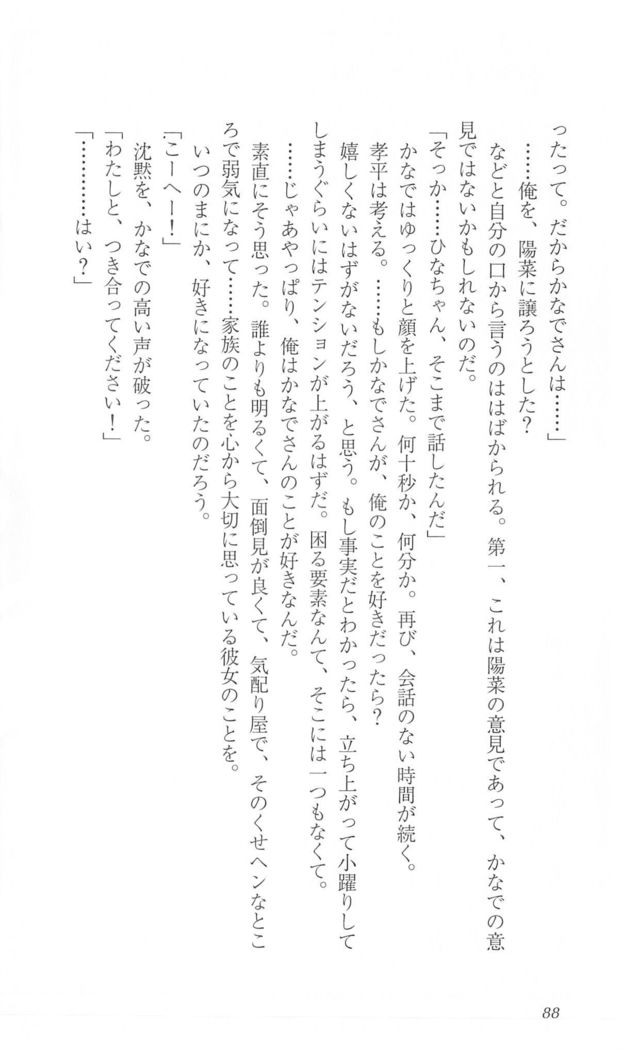 ったって。だからかなでさんは……」
……俺を、陽菜に譲ろうとした？
などと自分の口から言うのははばかられる。第一、これは陽菜の意見であって、かなでの意
見ではないかもしれないのだ。
「そっか……ひなちゃん、そこまで話したんだ」
かなではゆっくりと顔を上げた。何十秒か、何分か。再び、会話のない時間が続く。
孝平は考える。……もしかなでさんが、俺のことを好きだったら？
嬉しくないはずがないだろう、と思う。もし事実だとわかったら、立ち上がって小躍りして
しまうぐらいにはテンションが上がるはずだ。困る要素なんて、そこには一つもなくて。
……じゃあやっぱり、俺はかなでさんのことが好きなんだ。
素直にそう思った。誰よりも明るくて、面倒見が良くて、気配り屋で、そのくせヘンなとこ
ろで弱気になって……家族のことを心から大切に思っている彼女のことを。
いつのまにか、好きになっていたのだろう。
「こーへー！」
沈黙を、かなでの高い声が破った。
「わたしと、つき合ってください！」
「…………はい？」
88